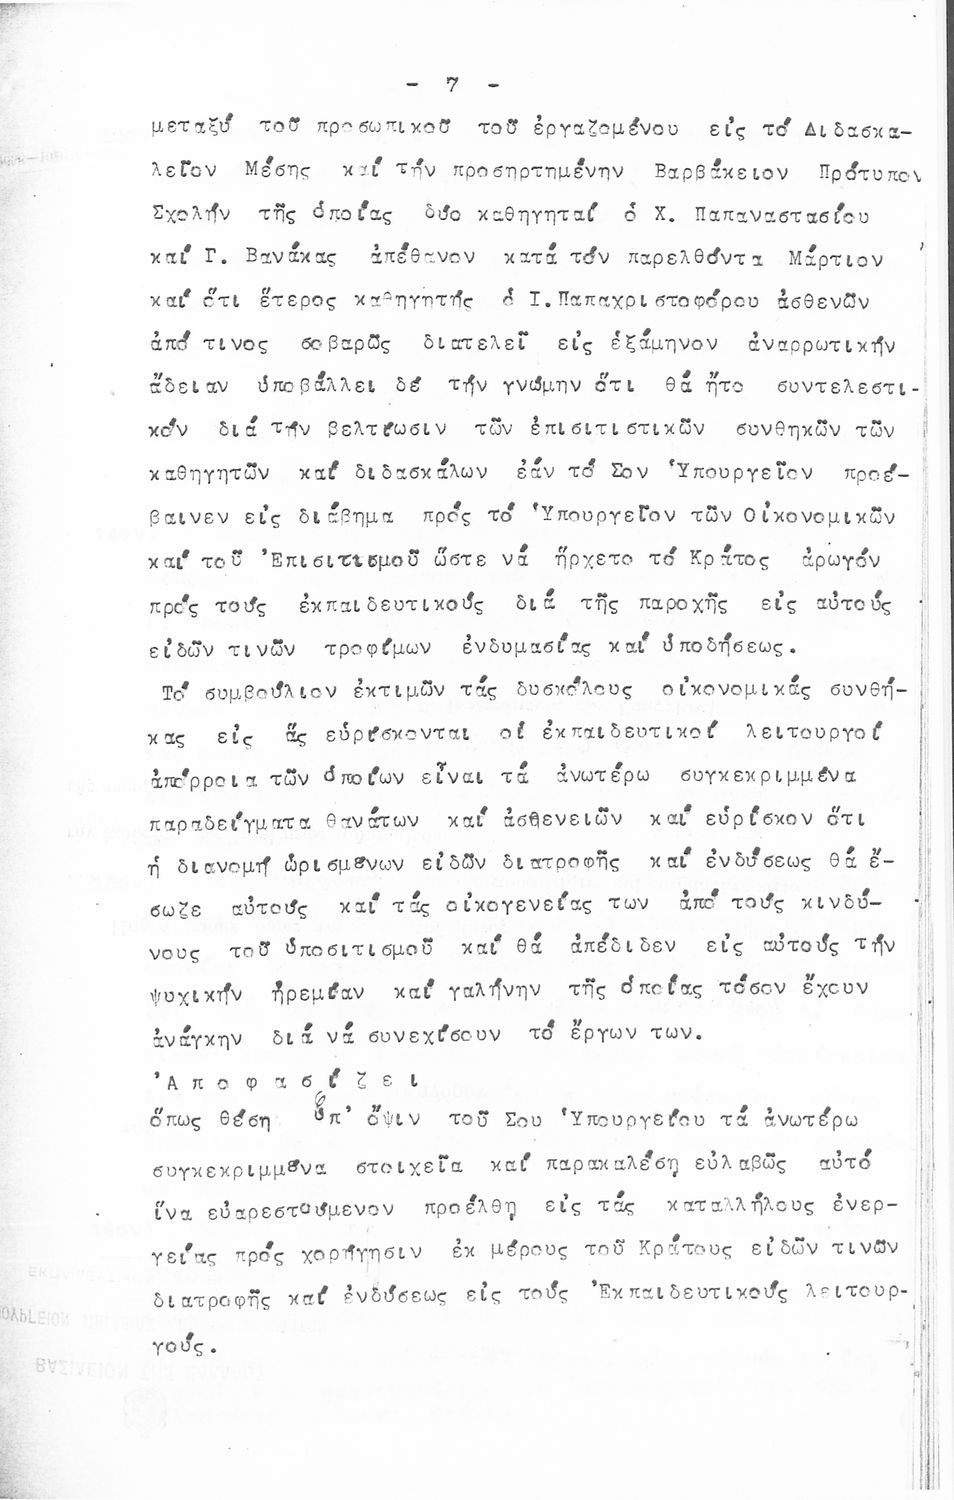 - 7 -
μεταξύ τοῦ προσωπικοῦ τοῦ ἐργαζομένου εἰς τό Διδασκα-
λεῖον Μέσης καί τήν προσηρτημένην Βαρβάκειον Πρότυπον
Σχολήν τῆς ὁποίας δύο καθηγηταί ὁ Χ. Παπαναστασίου
καί Γ. Βανάκας ἀπέθανον κατά τόν παρελθόντα Μάρτιον
καί ὅτι ἕτερος καθηγητής ὁ Ι.Παπαχριστοφόρου ἀσθενῶν
ἀπό τινος σοβαρῶς διατελεῖ εἰς ἑξάμηνον ἀναρρωτικήν
ἄδειαν ὑποβάλλει δέ τήν γνώμην ὅτι θά ἦτο συντελεστι-
κόν διά τήν βελτίωσιν τῶν ἐπισιτιστικῶν συνθηκῶν τῶν
καθηγητῶν καί διδασκάλων ἐάν τό Σον Ὑπουργεῖον προέ-
βαινεν εἰς διάβημα πρός τό Ὑπουργεῖον τῶν Οἰκονομικῶν
καί τοῦ Ἐπισιτισμοῦ ὥστε νά ἤρχετο τό Κράτος ἀρωγόν
πρός τούς ἐκπαιδευτικούς διά τῆς παροχῆς εἰς αὐτούς
εἰδῶν τινῶν τροφίμων ἐνδυμασίας καί ὑποδήσεως.
Τό συμβούλιον ἐκτιμῶν τάς δυσκόλους οἰκονομικάς συνθή-
κας εἰς ἅς εὑρίσκονται οἱ ἐκπαιδευτικοί λειτουργοί
ἀπόρροια τῶν ὁποίων εἶναι τά ἀνωτέρω συγκεκριμμένα
παραδείγματα θανάτων καί ἀσθενειῶν καί εὑρίσκον ὅτι
ἡ διανομή ὡρισμένων εἰδῶν διατροφῆς καί ἐνδύσεως θά ἔ-
σωζε αὐτούς καί τάς οἰκογενείας των ἀπό τούς κινδύ-
νους τοῦ ὑποσιτισμοῦ καί θά ἀπέδιδεν εἰς αὐτούς τήν
ψυχικήν ἠρεμίαν καί γαλήνην τῆς ὁποίας τόσον ἔχουν
ἀνάγκην διά νά συνεχίσουν τό ἔργων των.
Ἀ π ο φ α σ ί ζ ε ι
ὅπως θέση ὑπ' ὄψιν τοῦ Σου Ὑπουργείου τά ἀνωτέρω
συγκεκριμμένα στοιχεῖα καί παρακαλέση εὐλαβῶς αὐτό
ἵνα εὐαρεστούμενον προέλθη εἰς τάς καταλλήλους ἐνερ-
γείας πρός χορήγησιν ἐκ μέρους τοῦ Κράτους εἰδῶν τινῶν
διατροφῆς καί ἐνδύσεως εἰς τούς Ἐκπαιδευτικούς λειτουρ-
γούς.